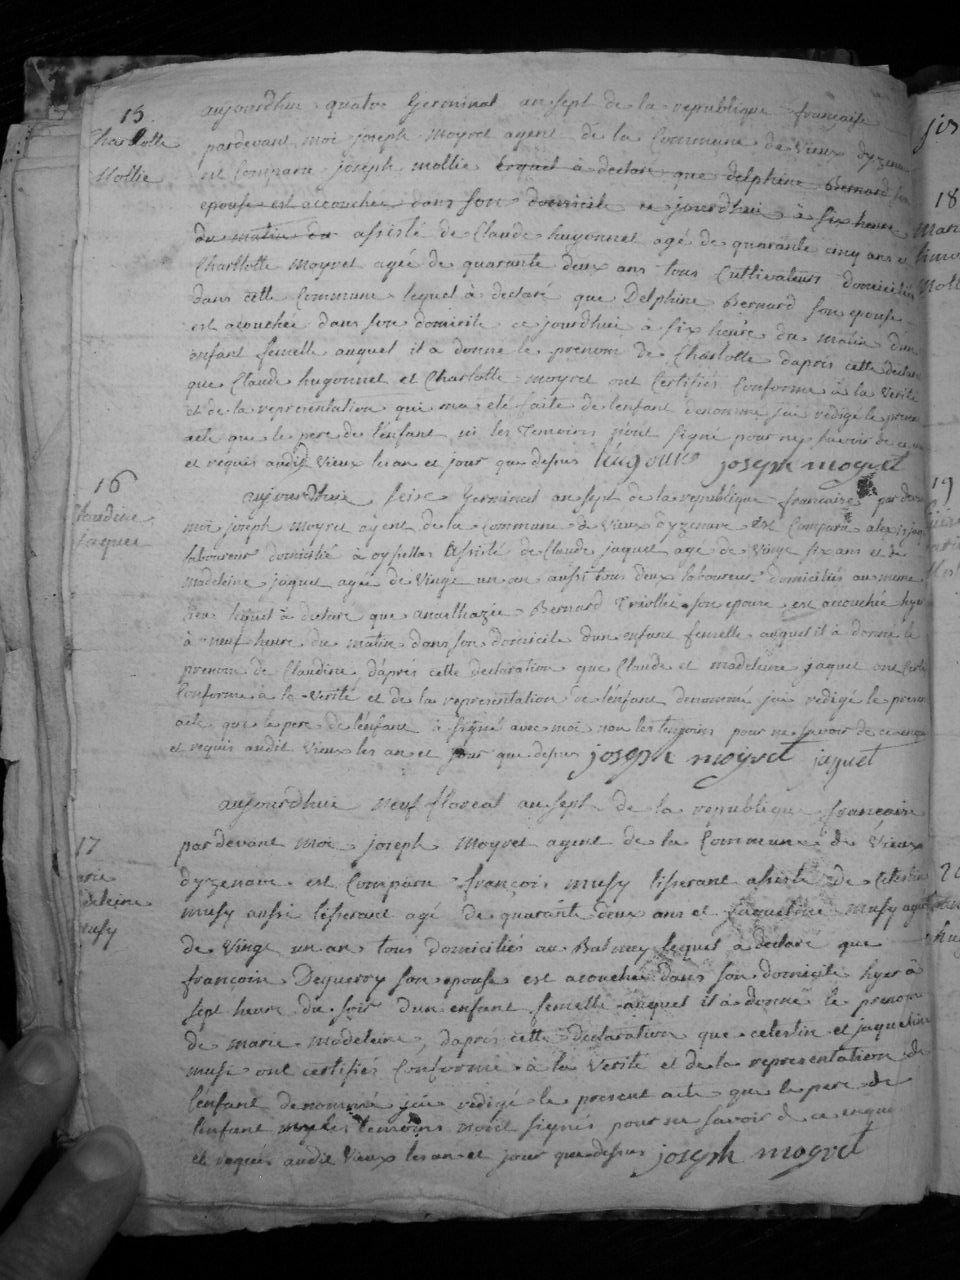 15
Charlotte
Mollie
aujourdhui quatre Germinal an sept de la republique francaise
pardevant moi joseph moyret agent de la Commune de Vieux dyzenave
est Comparu joseph mollie lequel à declaré que delphine Bernard son
epouse est accouchée dans son domicile ce jourdhui à six heure
du matin du assisté de Claude hugonnet agé de quarante cinq ans et
Charllotte moyret agée de quarante deux ans tous Cultivateurs domiciliés
dans cette Commune lequel à declaré que Delphine Bernard son epouse
est acouchée dans son domicile ce jourdhui à six heure du matin dun
enfant femelle auquel il a donné le prenom de Charlotte dapres cette declara
que Claude hugonnet et Charlotte moyret ont Certifiés Conforme à la Verité
et de la representation qui ma été faite de lenfant denommé jai redigé le present
acte que le pere de lenfant ni les Temoins nont signé pour ne savoir de ce
et requis audit Vieux les an et jour que dessus joseph moyret
16
Claudine
jaquet
aujourdhui seize Germinal an sept de la republique francaise par devant
moi joseph moyret agent de la Commune de Vieux dyzenave est Comparu alexis jaq
laboureur domicilié à oysellas assisté de Claude jaquet agé de Vingt six ans et de
madeleine jaquet agée de Vingt un an aussi tous deux laboureur domiciliés au meme
lieu lequel à declaré que anathazie Bernard Triollet son epouse est acouchée hyer
à neuf heure du matin dans son domicile dun enfant femelle auquel il à donné le
prenom de Claudine dapres cette declaration que Claude et madeleine jaquet ont Certi
Conforme à la Verité et de la representation de lenfant denommé jai redigé le present
acte que le pere de lenfant à signé avec moi non les temoins pour ne savoir de ce enqui
et requis audit Vieux les an et jour que dessus joseph moyret jaquet
17
arie
deleine
musy
aujourdhui neuf floreal an sept de la republique francaise
pardevant moi joseph Moyret agent de la Commune de Vieux
dyzenave est Comparu françois musy tisserant assisté de Celestin
musy aussi tisserant agé de quarante deux ans et jaqueline musy agée
de Vingt un an tous domiciliés au Balmey lequel à declaré que
françoise Dequerry son epouse est acouchée dans son domicile hyer à
sept heure du soir dun enfant femelle auquel il à donné le prenom
de marie madeleine, dapres cette declaration que celestin et jaqueline
musi ont certifiés Conforme à la Verité et de la representation de
lenfant denommé jai redigé le present acte que le pere de
lenfant ny les temoins nont signés pour ne savoir de ce enquis
et requis audit Vieux les an et jour que dessus joseph moyret
18
19